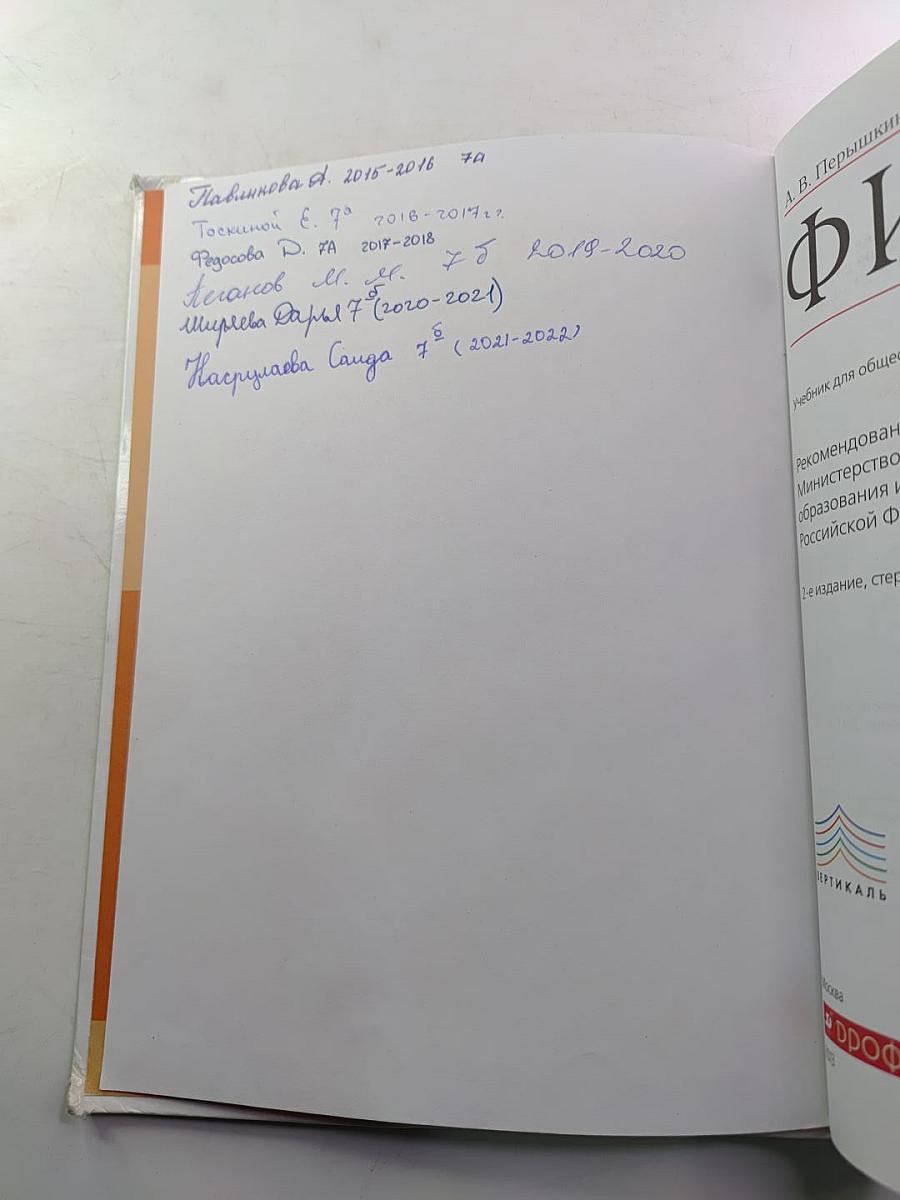 Павликова А. 2015-2016 7а
Тоскиной Е. 7а 2016-2017 г.г.
Федосова D. 7А 2017-2018
М. М. 7б 2019-2020
Ширяева Дарья 7б (2020-2021)
Насрулаева Саида 7б (2021-2022)
А. В. Перышкин
ФИ
Учебник для общес
Рекомендован
Министерство
образования и
Российской Ф
2-е издание, стер
ВЕРТИКАЛЬ
Москва
ДРОФ